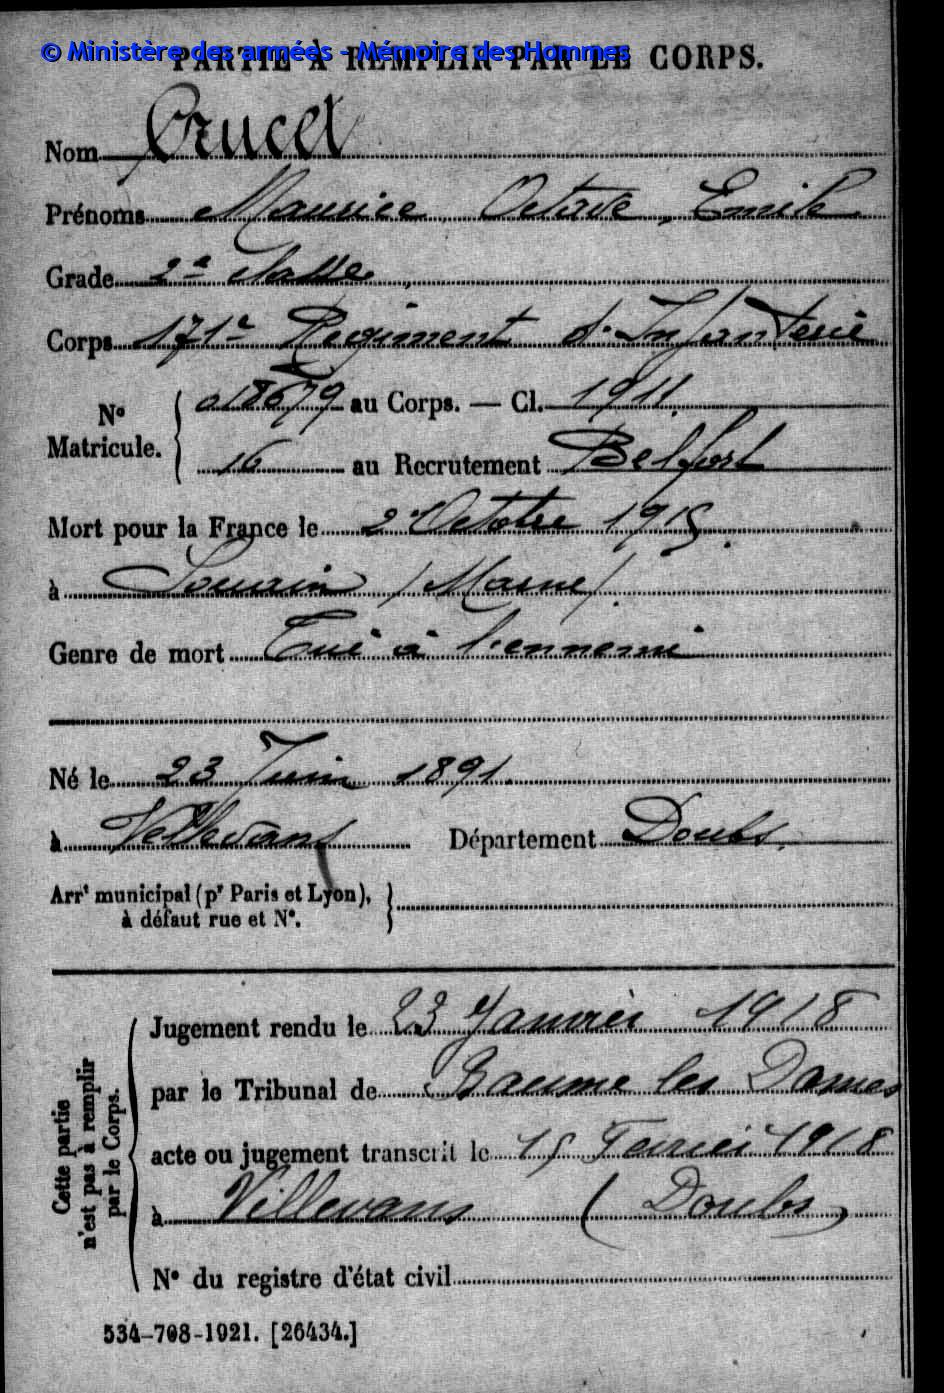 © Ministère des armées - Mémoire des Hommes
PARTIE À REMPLIR PAR LE CORPS.
Nom Crucet
Prénoms Maurice Octave, Emile
Grade 2e classe
Corps 171e Régiment d'Infanterie
No Matricule. 018679 au Corps. — Cl. 1911
16 au Recrutement Belfort
Mort pour la France le 2 Octobre 1915.
à Souain (Marne).
Genre de mort Tué à l'ennemi
Né le 23 Juin 1891.
à Vellevans Département Doubs.
Arrt municipal (pr Paris et Lyon),
à défaut rue et No.
Cette partie n'est pas à remplir par le Corps.
Jugement rendu le 23 Janvier 1918
par le Tribunal de Baume les Dames
acte ou jugement transcrit le 15 Fevrier 1918
à Villevans (Doubs)
No du registre d'état civil
534-708-1921. [26434.]